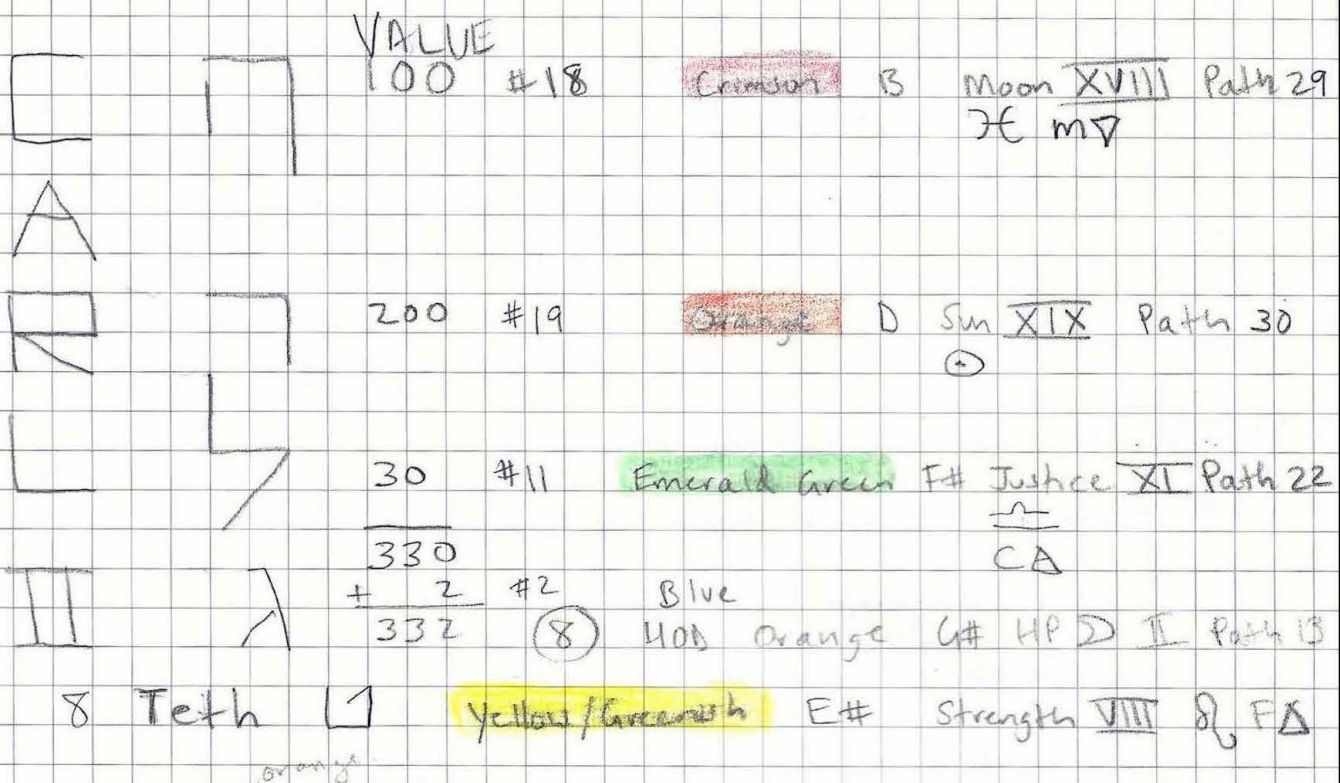 VALUE
C ק 100 #18 Crimson B Moon XVIII Path 29
♓ m▽
A
R ר 200 #19 Orange D Sun XIX Path 30
☉
L ל 30 #11 Emerald Green F# Justice XI Path 22
♎
330 C🜁
II ג + 2 #2 Blue
332 8 HOD Orange G# HP ☽ II Path 13
8 Teth ט Yellow/Greenish E# Strength VIII ♌ F△
orange